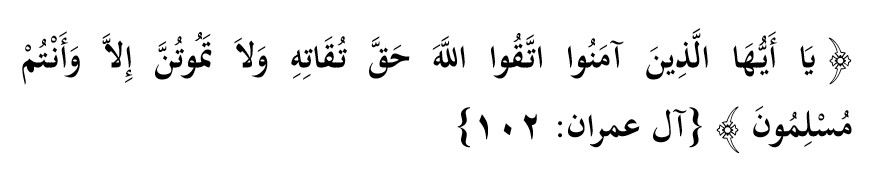 ﴿ يَا أَيُّهَا الَّذِينَ آمَنُوا اتَّقُوا اللَّهَ حَقَّ تُقَاتِهِ وَلاَ تَمُوتُنَّ إِلاَّ وَأَنْتُمْ
مُسْلِمُونَ ﴾ {آل عمران: ١٠٢}